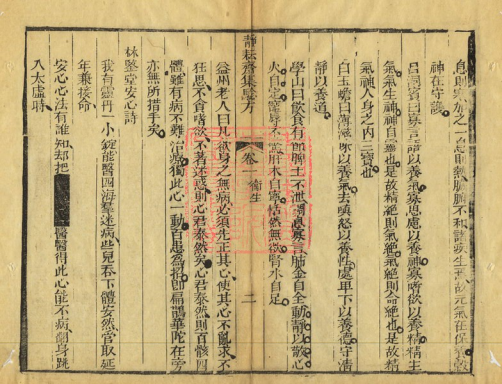 息則寒施之一怠則熱臟腑不和諸疾生矣故元氣在保養穀
神在守護
呂洞賓曰寡言語以養氣寡思慮以養神寡嗜欲以養精精生
氣氣生神神自靈也是故精絕則氣絕氣絕則命絕也是故精
氣神人身之內三寶也
白玉蟾曰薄滋味以養氣去嗔怒以養性處卑下以養德守清
靜以養道
學山曰飲食有節脾土不泄調息寡言肺金自全動靜以敬心
火自定寵辱不驚肝木自寧恬然無欲腎水自足
靜耘齋集驗方
卷一 衛生
二
益州老人曰凡欲身之無病必須先正其心使其心不亂求不
狂思不貪嗜欲不着迷惑則心君泰然矣心君泰然則百骸四
體雖有病不難治療獨此心一動百患為招即扁鵲華陀在旁
亦無所措手矣
林鑒堂安心詩
我有靈丹一小錠能醫四海羣迷病些兒吞下體安然管取延
年兼接命
安心心法有誰知却把醫醫得此心能不病翻身跳
入太虛時